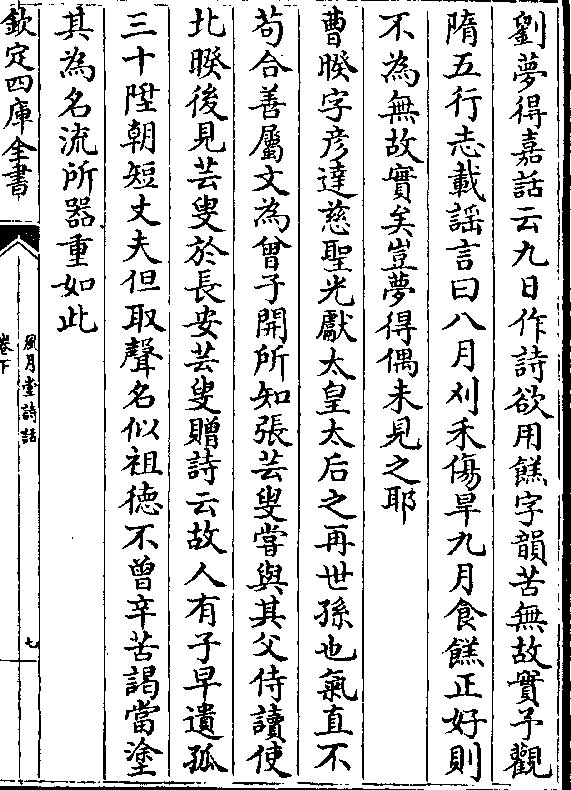 劉夢得嘉話云九日作詩欲用餻字韻苦無故實予觀
隋五行志載謡言曰八月刈禾傷旱九月食餻正好則
不為無故實矣豈夢得偶未見之耶
曹睽字彦達慈聖光獻太皇太后之再世孫也氣直不
苟合善屬文為曾子開所知張芸叟嘗與其父侍讀使
北睽後見芸叟於長安芸叟贈詩云故人有子早遺孤
三十陞朝短丈夫但取聲名似祖徳不曾辛苦謁當塗
其為名流所器重如此
欽定四庫全書
風月堂詩話
卷下
七